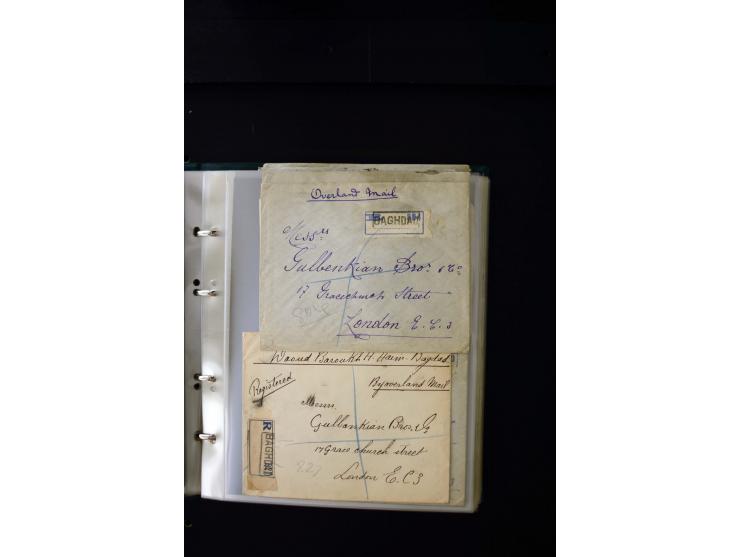 Overland Mail
BAGHDAD
Messrs
Gulbenkian Bros & Co
17 Gracechurch Street
London E.C.3
Daoud Baroukh H. Haim. Bagdad
Registered
By overland Mail
Messrs
Gulbankian Bros. &
17 Grace church street
London E.C 3
R BAGHDAD